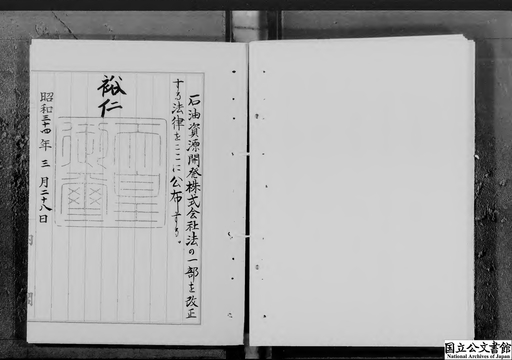 石油資源開発株式会社法の一部を改正
する法律をここに公布する。
裕仁
天皇御璽
昭和三十四年三月二十八日
国立公文書館
National Archives of Japan